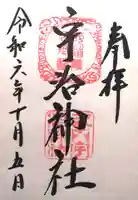 奉拝
宇治神社
令和六年十月五日